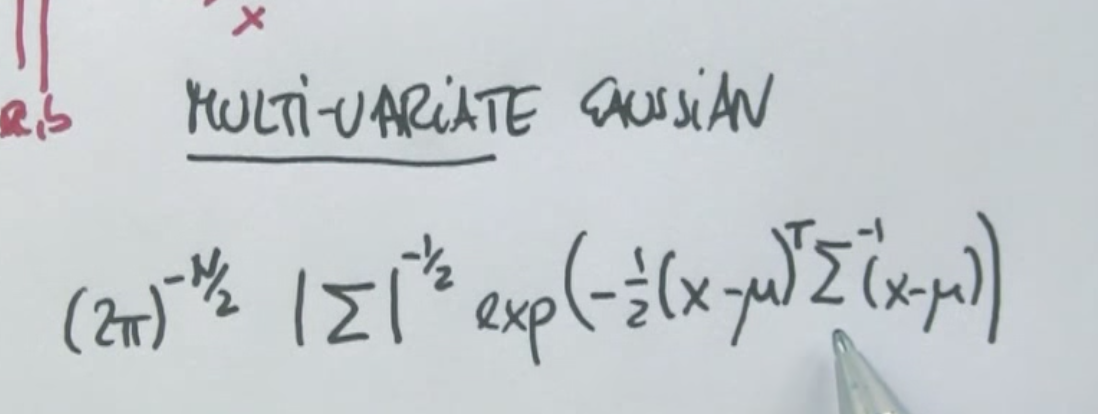 x
a,b
MULTI-VARIATE GAUSSIAN
(2π)^{-N/2} |Σ|^{-1/2} exp(-1/2(x-μ)^T Σ^{-1}(x-μ))